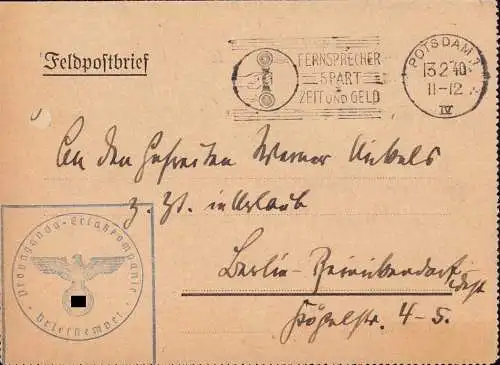 Feldpostbrief
FERNSPRECHER
SPART
ZEIT UND GELD
POTSDAM 1
13.2.40
11-12
IV
An den Gefreiten Werner Nickels
z. Zt. in Urlaub
Berlin-Reinickendorf
4-5.
Propaganda-Ersatzkompanie
Briefstempel